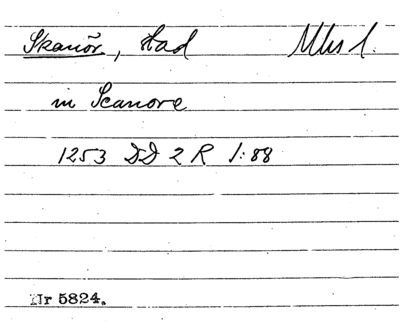 Skanör, stad Mhs l.
in Scanore
1253 DD 2 R 1:88
Nr 5824.